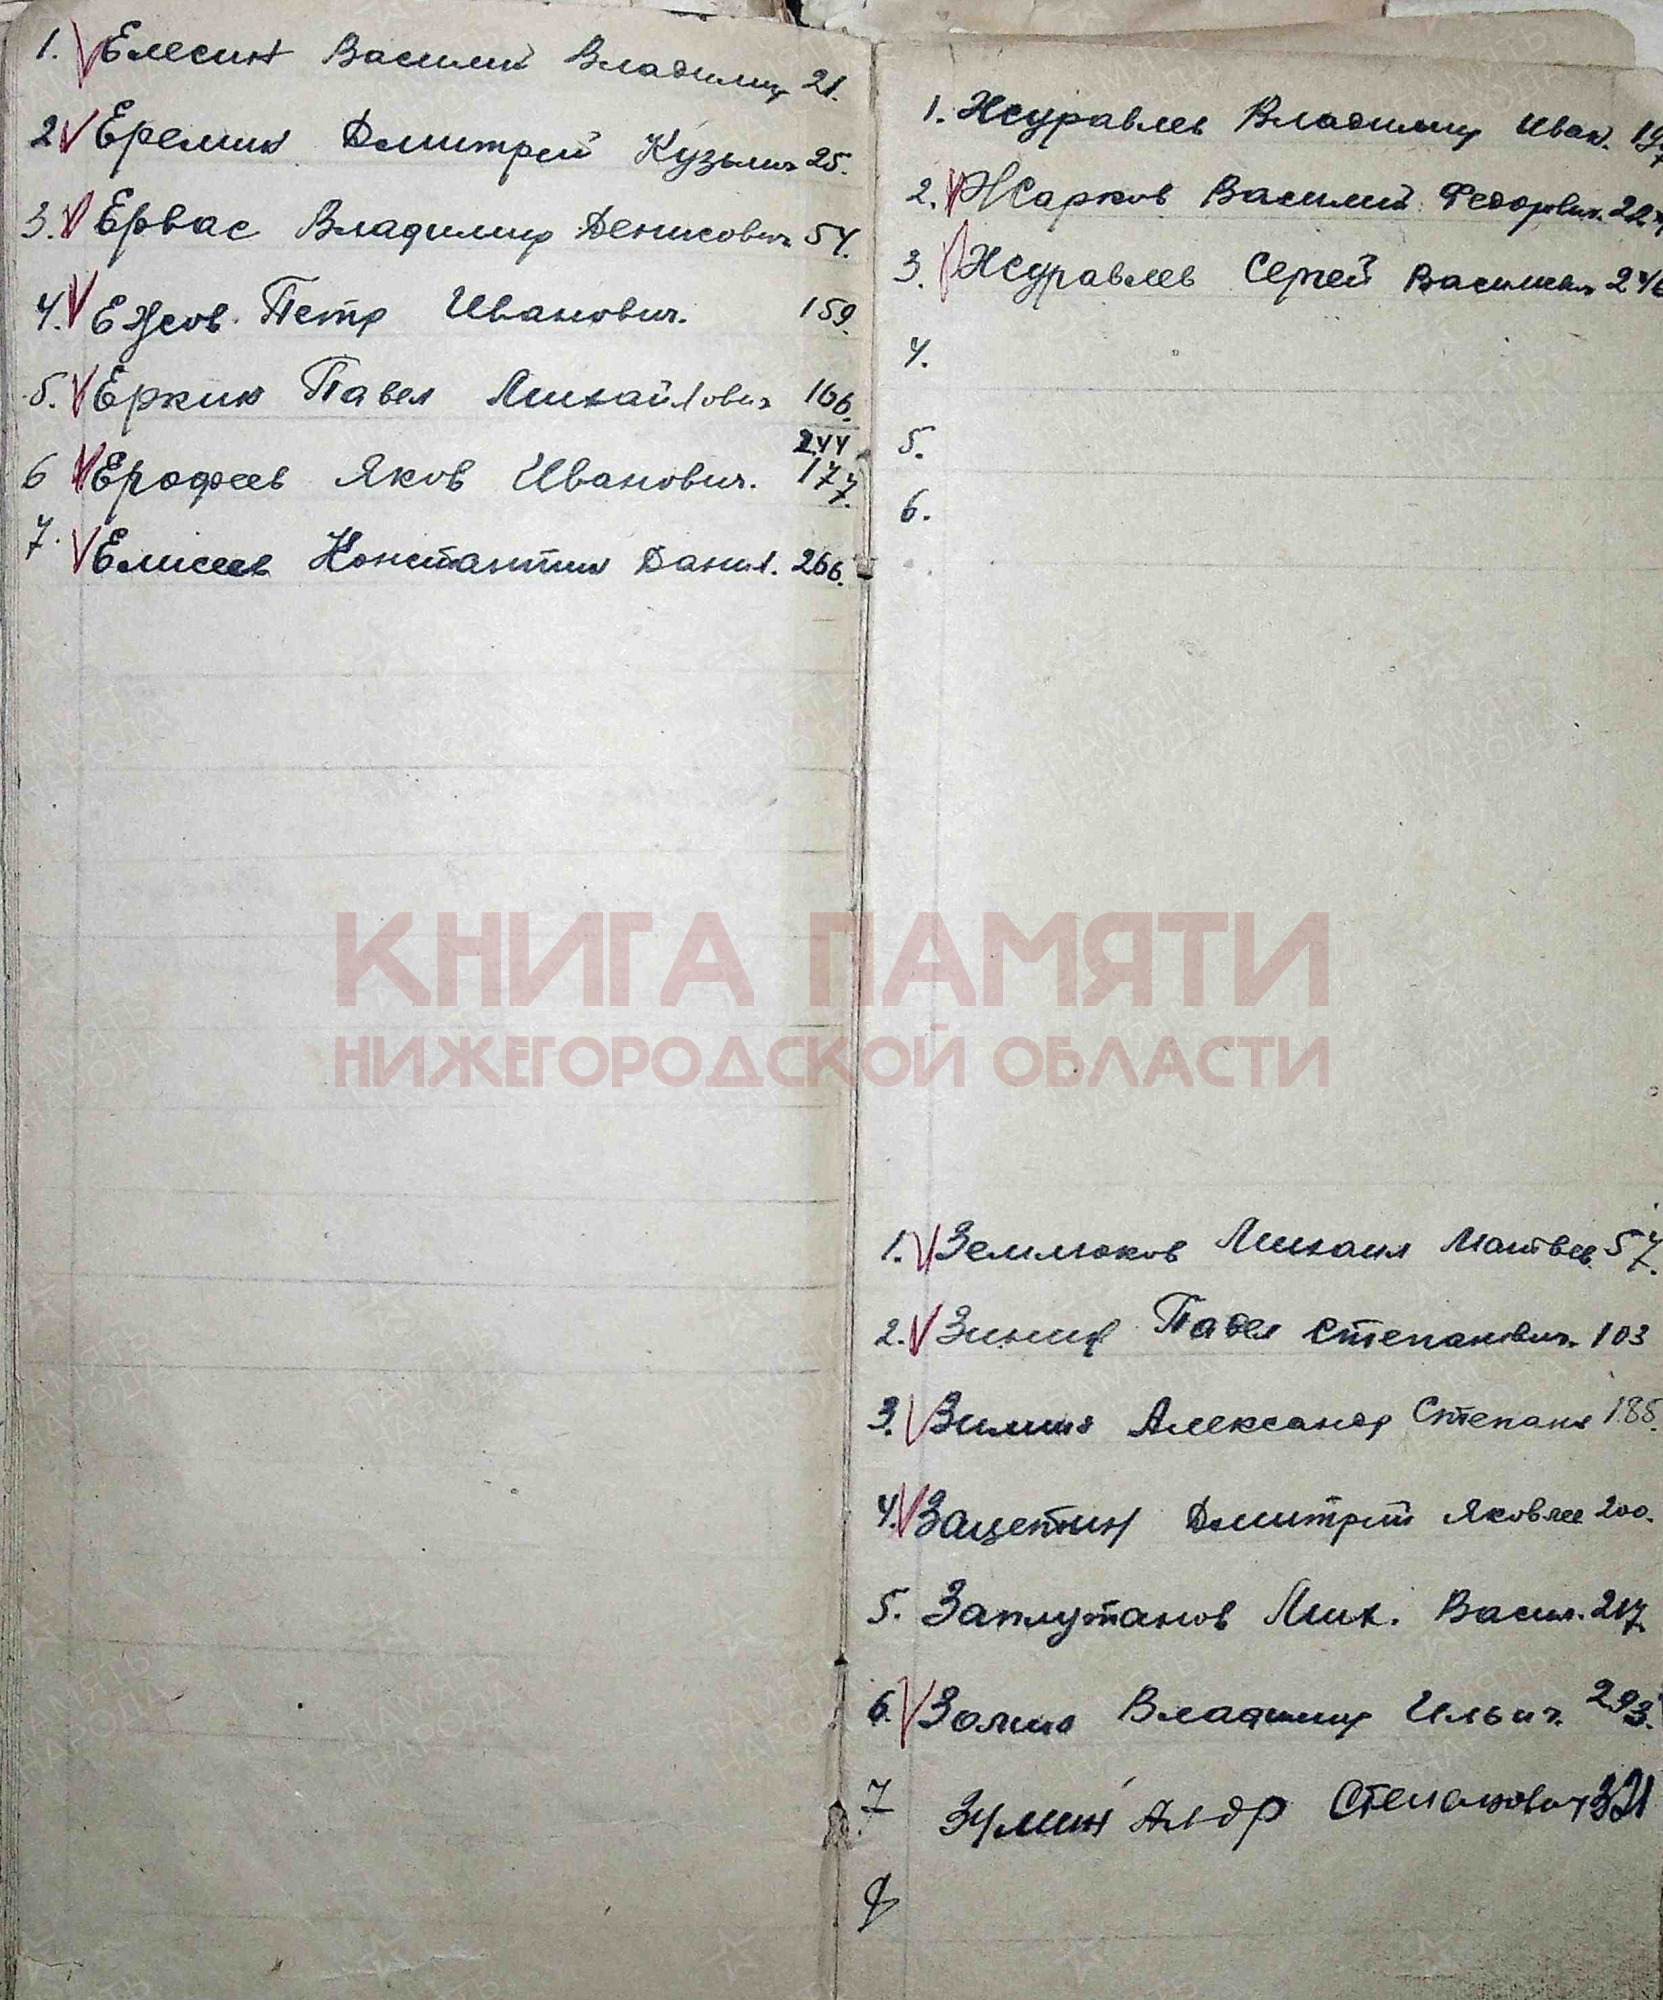 1. Елесин Василий Владимир 21.
2 Еремин Дмитрий Кузьмич 25.
3. Ервас Владимир Денисович 54.
4. Ежов Петр Иванович. 159.
5. Еркин Павел Михайлович 166.
244
6 Ерофеев Яков Иванович. 177.
7. Елисеев Константин Данил. 266.
1. Журавлев Владимир Иван.
2. Жарков Василий Федорович.
3. Журавлев Сергей Васильев
4.
5.
6.
КНИГА ПАМЯТИ
НИЖЕГОРОДСКОЙ ОБЛАСТИ
1. Землюков Михаил Матвев. 57.
2. Зинин Павел Степанович. 103
3. Зимин Александр Степан 185.
4. Зацепин Дмитрий Яковлев 200.
5. Заплутанов Мих. Васил. 217.
6. Золин Владимир Ильич. 293.
7 Зимин Алдр Степанович 321
8